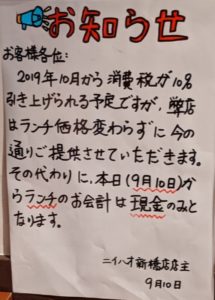 お知らせ
お客様各位:
2019年10月から消費税が10%
引き上げられる予定ですが,弊店
はランチ価格変わらずに今の
通りご提供させていただきます。
その代わりに、本日(9月10日)か
らランチのお会計は現金のみと
なります。
ニイハオ新橋店店主
9月10日